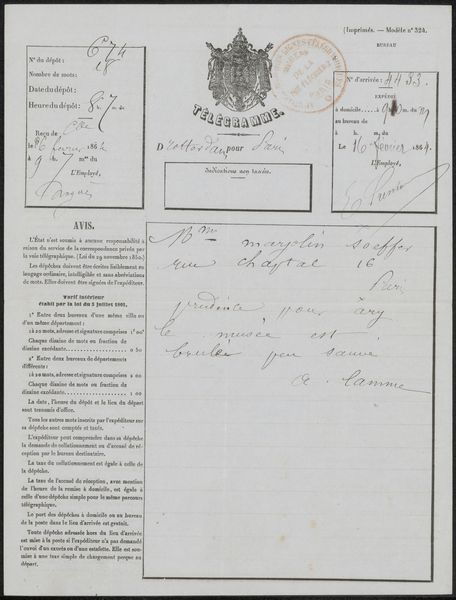 (Imprimés. — Modèle nº 324.
BUREAU
Nº du dépôt: 674
Nombre de mots: 18
Date du dépôt:
Heure du dépôt: 8 h. 7 m.
Reçu de
Le 16 fevrier 1864
à 9 h. 7 m. du
L'Employé,
TÉLÉGRAMME.
D rotterdam pour Paris
Indications non taxées.
Nº d'arrivée: 4433.
EXPÉDIÉ
à domicile, à 9 h. m. du
au bureau de
à h. m. du
Le 16 fevrier 1864.
L'Employé,
AVIS.
L'État n'est soumis à aucune responsabilité à
raison du service de la correspondance privée par
la voie télégraphique. (Loi du 29 novembre 1850.)
Les dépêches doivent être écrites lisiblement en
langage ordinaire, intelligible et sans abréviations
de mots. Elles doivent être signées de l'expéditeur.
Tarif intérieur
établi par la loi du 3 juillet 1861.
1º Entre deux bureaux d'une même ville ou
d'un même département:
1 à 20 mots, adresse et signature comprises 1f 00c
Chaque dixaine de mots ou fraction de
dixaine excédante. 0 50
2º Entre deux bureaux de départements
différents:
1 à 20 mots, adresse et signature comprises 2 00
Chaque dixaine de mots ou fraction de
dixaine excédante. 1 00
La date, l'heure du dépôt et le lieu du départ
sont transmis d'office.
Tous les autres mots inscrits par l'expéditeur sur
sa dépêche sont comptés et taxés.
L'expéditeur peut comprendre dans sa dépêche
la demande de collationnement ou d'accusé de ré-
ception par le bureau destinataire.
La taxe du collationnement est égale à celle de
la dépêche.
La taxe de l'accusé de réception, avec mention
de l'heure de la remise à domicile, est égale à
celle d'une dépêche simple pour le même parcours
télégraphique.
Le port des dépêches à domicile ou au bureau de
la poste dans le lieu d'arrivée est gratuit.
Toute dépêche adressée hors du lieu d'arrivée
est mise à la poste si l'expéditeur n'a pas demandé
l'envoi d'un exprès ou d'une estafette. Elle est sou-
mise à une taxe simple de chargement perçue au
départ.
Mme marjolin sceffer
rue chaptal 16
Paris
prudence pour ary
le musée est
brulée peu sauvé
a. lamme